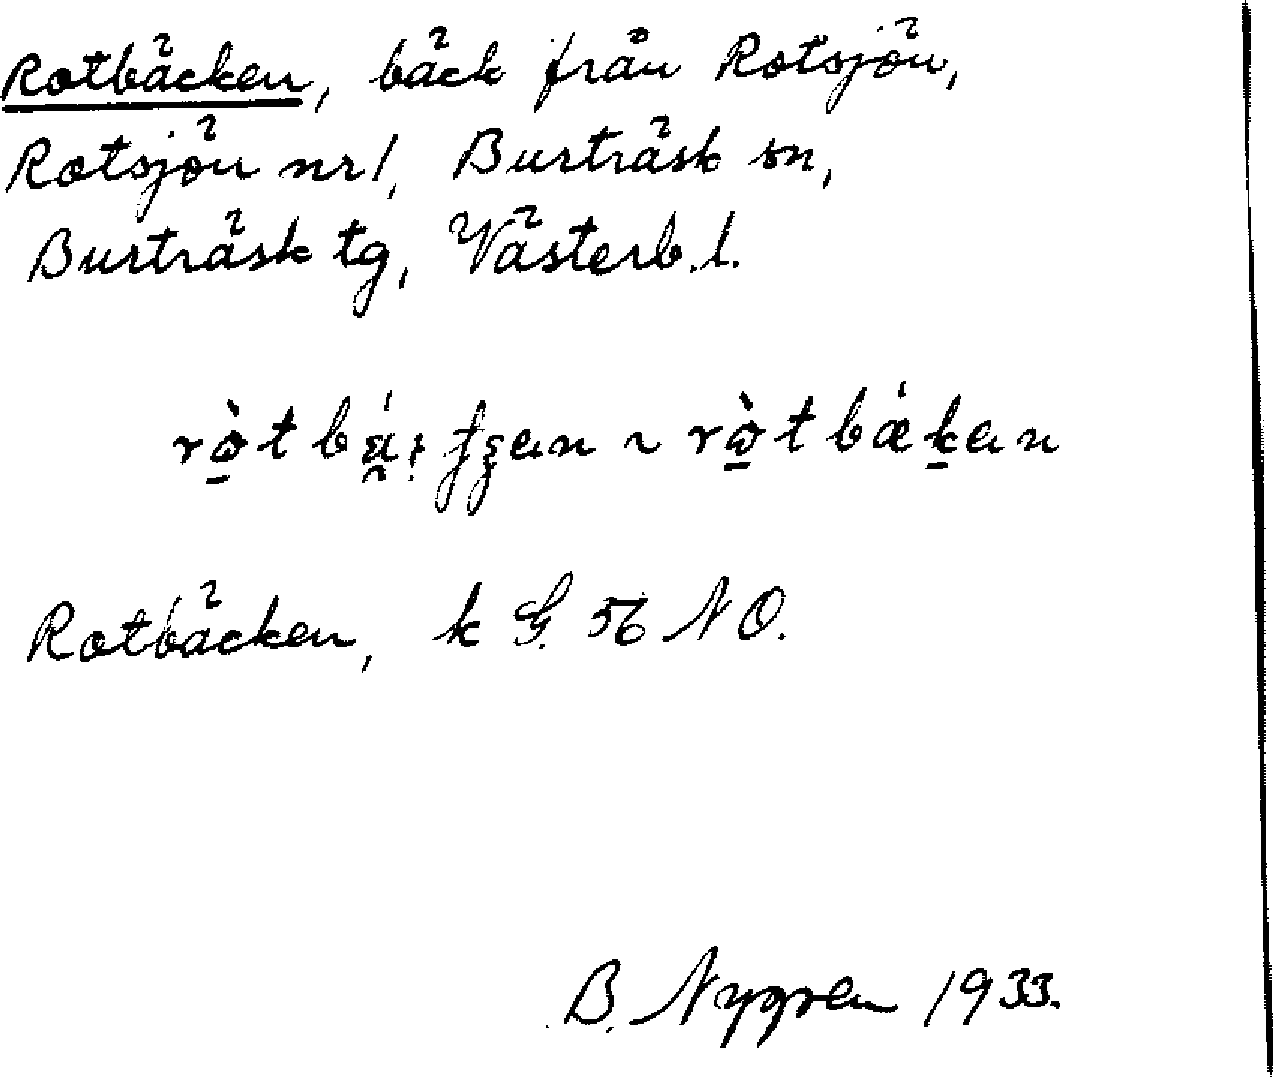 Rotbäcken, bäck från Rotsjön,
Rotsjön nr 1, Burträsk sn,
Burträsk tg, Västerb. l.
Rotbäcken, k G. 56 NO.
B. Nygren 1933.